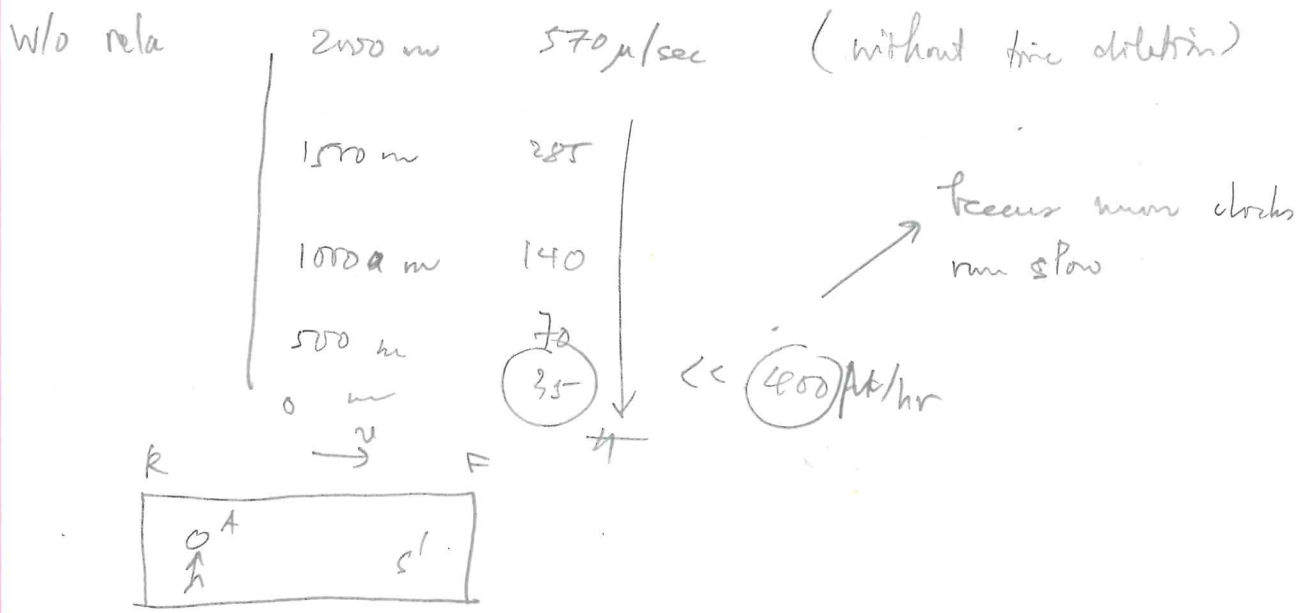 W/o rela 2000 m 570 μ/sec (without time dilation)
1500 m 285
1000 m 140
500 m 70
0 m 35 << 400 /hr
because muon clocks
run slow
v
R F
A
S'